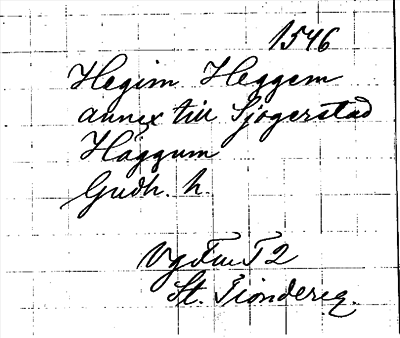 1546
Hegim Heggem
annex till Sjogerstad
Häggum
Gudh. h.
Vg Fm T 2
St. Tiondereg.